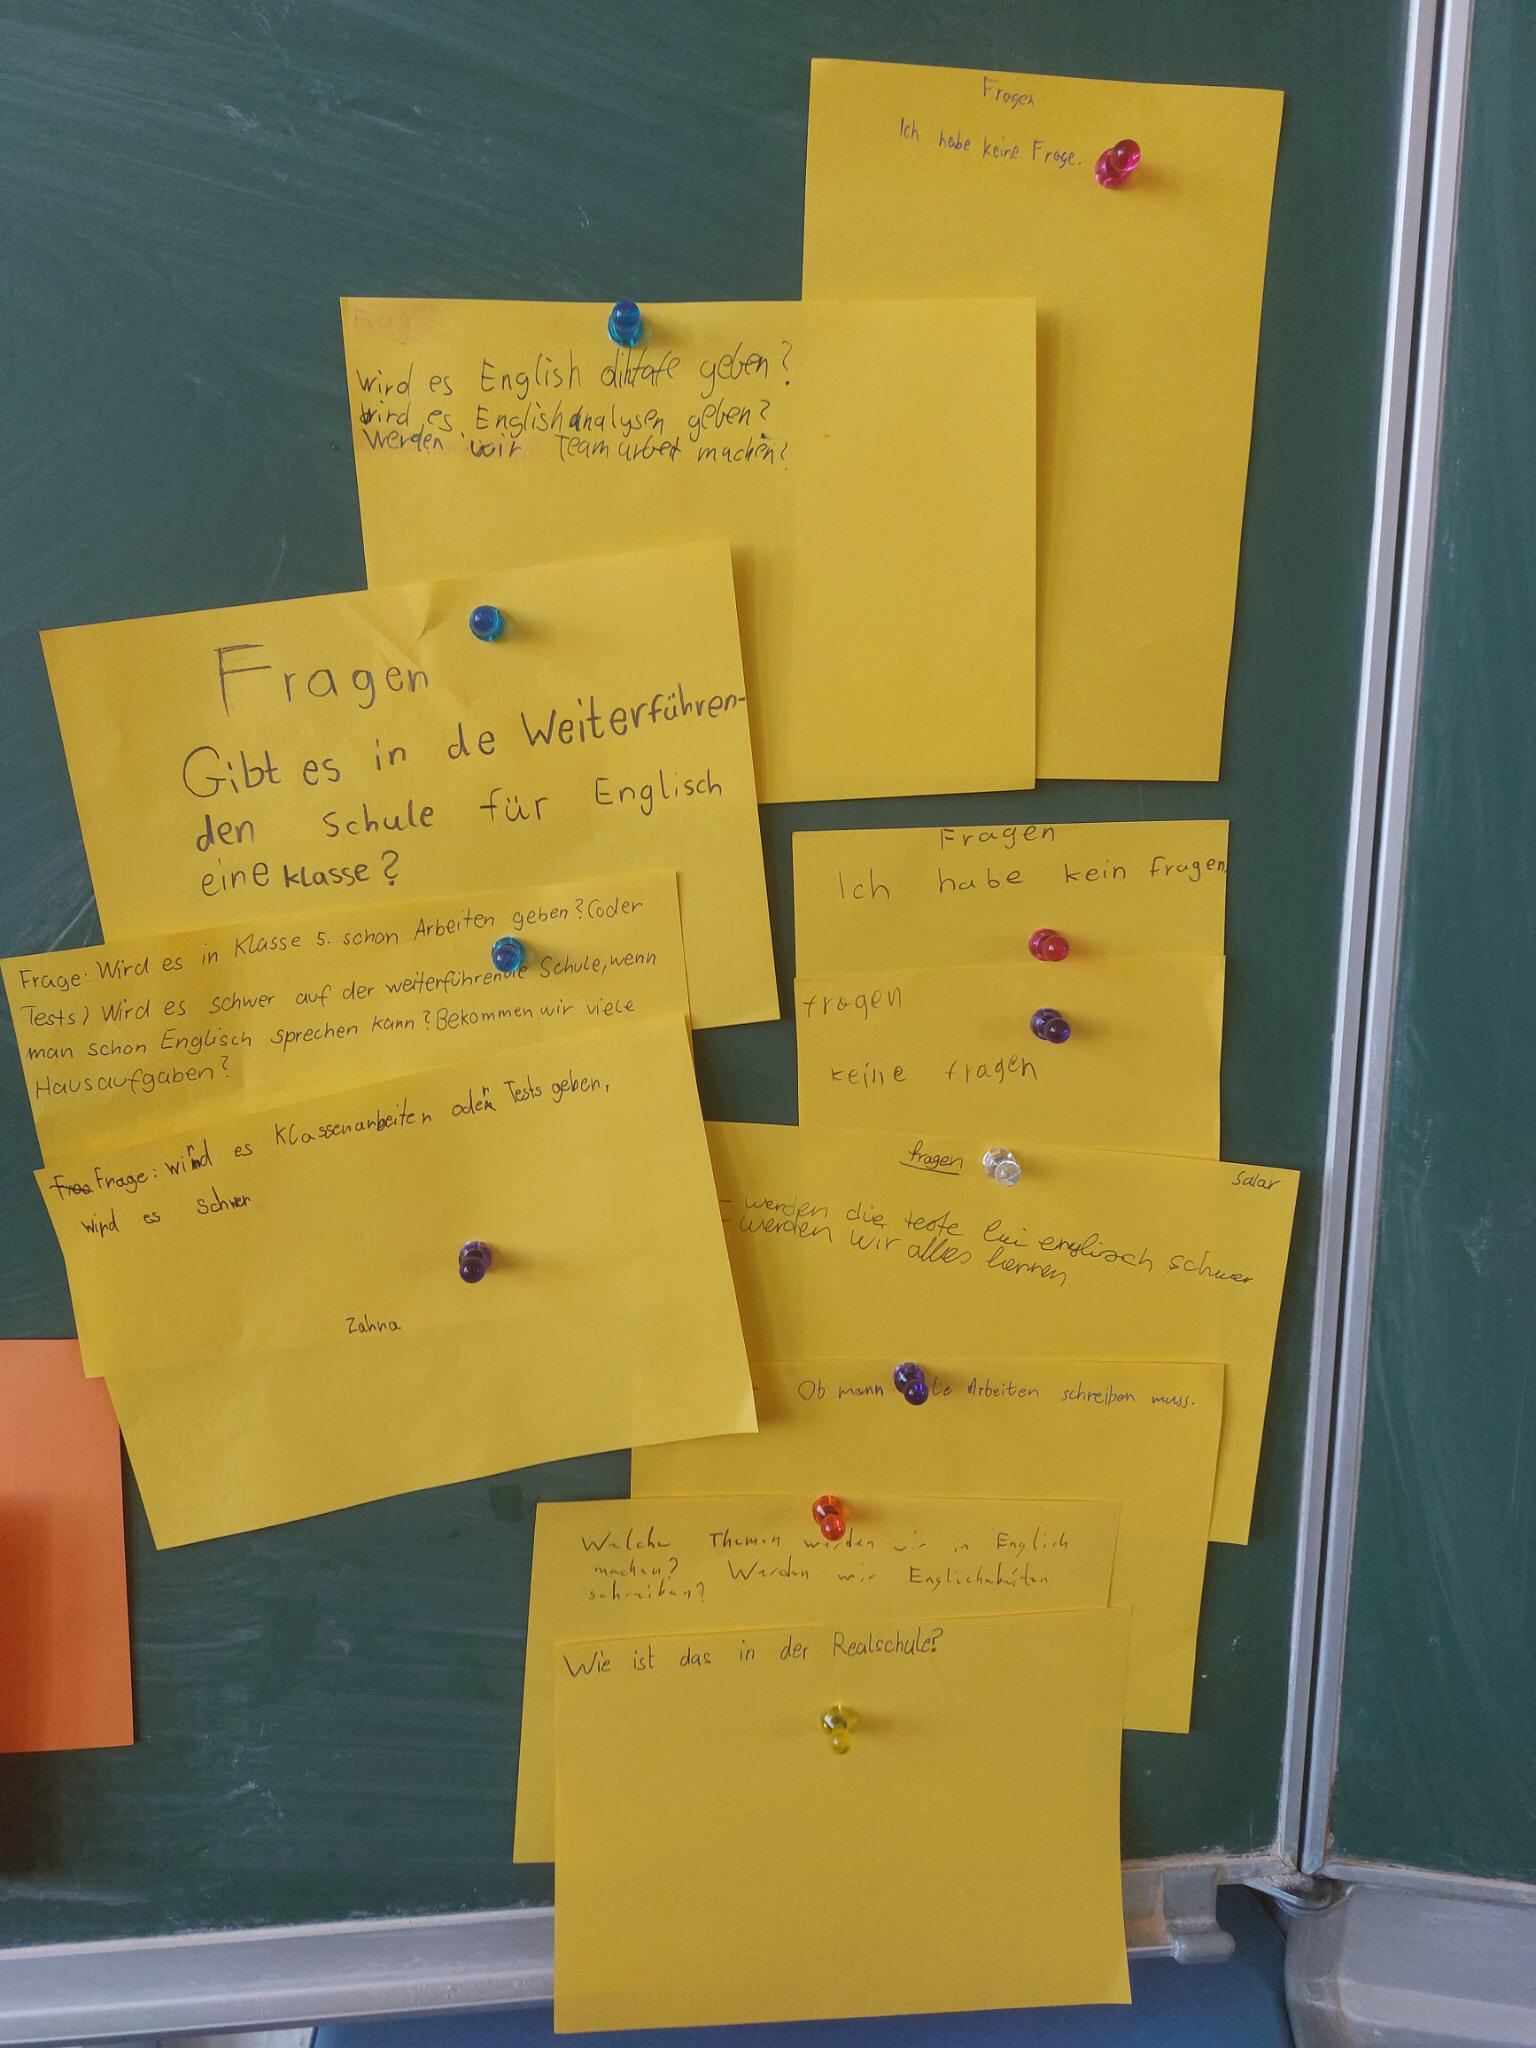 Fragen
Ich habe keine Frage.
wird es English diktate geben?
wird es Englishanalysen geben?
Werden wir Teamarbeit machen?
Fragen
Gibt es in de Weiterführen-
den Schule für Englisch
eine klasse?
Frage: Wird es in Klasse 5. schon Arbeiten geben? (oder
Tests) Wird es schwer auf der weiterführende Schule, wenn
man schon Englisch sprechen kann? Bekommen wir viele
Hausaufgaben?
Frage: wird es Klassenarbeiten oder Tests geben,
wird es schwer
Zahra
Fragen
Ich habe kein fragen
fragen
keine fragen
fragen
salar
- werden die teste bei englisch schwer
- werden wir alles lernen
- Ob mann Arbeiten schreiben muss.
Welche Themen werden wir in Englich
machen? Werden wir Englichabeiten
schreiben?
Wie ist das in der Realschule?